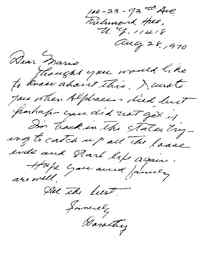 102-23-92nd Ave
Richmond Hill
N.Y. 11418
Aug 28, 1970
Dear Mario
Thought you would like
to know about this. I wrote
you other
perhaps you did not get it.
I'm back in the States try-
ing to catch up all the loose
ends and start life again.
Hope you and family
are well.
All the best.
Sincerely
Dorothy